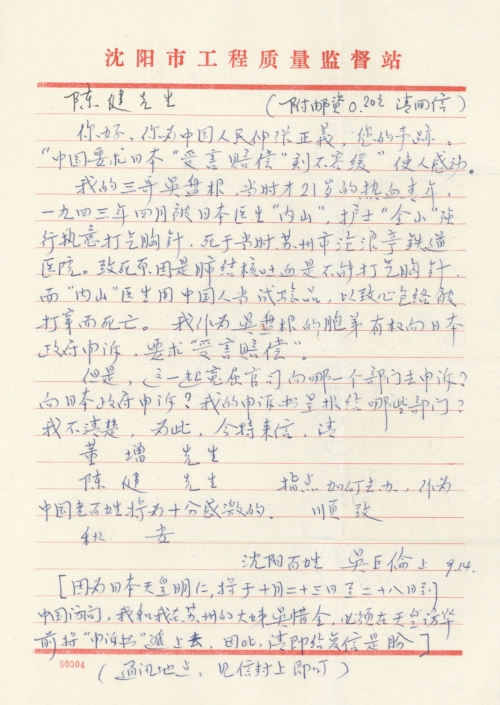 沈阳市工程质量监督站
陈健先生 (附邮资0.20元 请回信)
你好、你为中国人民伸张正义,您的事迹、
“中国要求日本“受害赔偿”刻不容缓”使人感动。
我的三哥吴盘根,当时才21岁的热血青年,
一九四三年四月被日本医生“内山”,护士“金山”强
行执意打气胸针,死于当时苏州市沧浪亭铁道
医院。致死原因是肺结核吐血是不能打气胸针,
而“内山”医生用中国人当试验品,以致心包络被
打穿而死亡。我作为吴盘根的胞弟有权向日本
政府申诉,要求“受害赔偿”。
但是,这一起冤屈官司向哪一个部门去申诉?
向日本政府申诉?我的申诉书呈报给哪些部门?
我不清楚,为此,今特来信,请
董增先生
陈健先生 指点如何去办,作为
中国老百姓将为十分感激的。 顺致
秋安
沈阳百姓 吴巨伦上 9.14.
[因为日本天皇明仁,将于十月二十三日至二十八日到
中国访问,我和我在苏州的大妹吴惜金,必须在天皇访华
前将“申诉书”递上去,因此,请即给复信是盼]
(通讯地点:见信封上即可)
50304